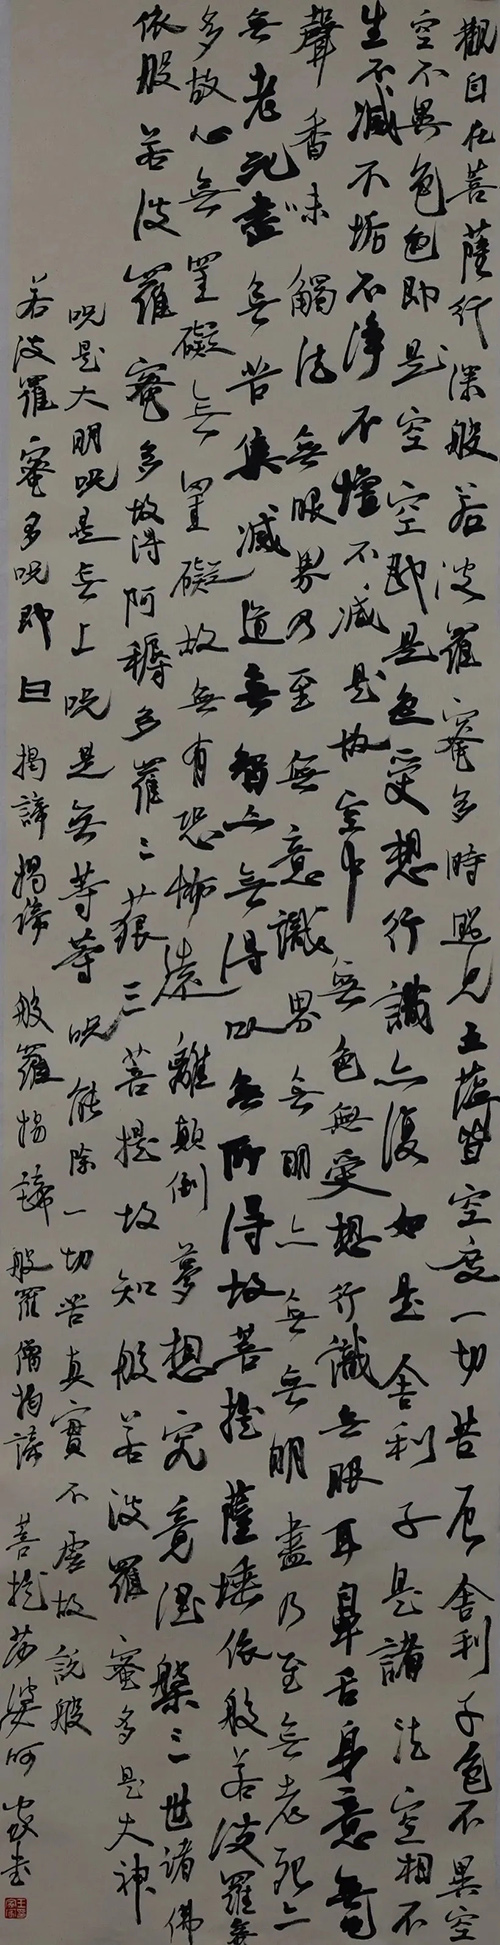 觀自在菩薩行深般若波羅蜜多時照見五蘊皆空度一切苦厄舍利子色不異空
空不異色色即是空空即是色受想行識亦復如是舍利子是諸法空相不
生不滅不垢不淨不增不減是故空中無色無受想行識無眼耳鼻舌身意無
聲香味觸法無眼界乃至無意識界無無明亦無無明盡乃至無老死亦
無老死盡無苦集滅道無智亦無得以無所得故菩提薩埵依般若波羅蜜
多故心無罣礙無罣礙故無有恐怖遠離顛倒夢想究竟涅槃三世諸佛
依般若波羅蜜多故得阿耨多羅三藐三菩提故知般若波羅蜜多是大神
咒是大明咒是無上咒是無等等咒能除一切苦真實不虛故說般
若波羅蜜多咒即曰揭諦揭諦般羅揭諦般羅僧揭諦菩提莎婆呵